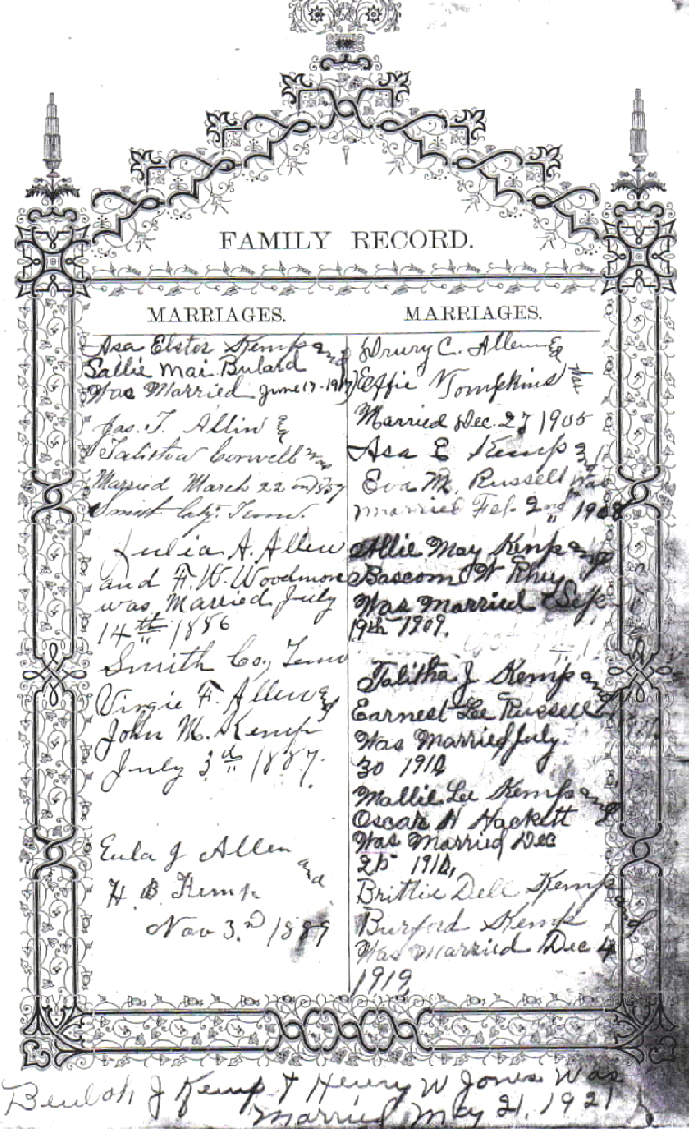 FAMILY RECORD.
MARRIAGES.
Asa Elster Kemp and
Sallie Mai Bulard
Was Married June 17-1917
Jas. T. Allin &
Talitha Conwell was
Married March 22 1857
Smith Co. Tenn.
Julia A. Allen
and F. W. Woodmore
was Married July
14th 1886
Smith Co, Tenn
Virgie F. Allen and
John M. Kemp
July 3d 1887.
Eula J Allen
and
H. B. Kemp
Nov 3.rd 1889
MARRIAGES.
Drury C. Allen &
Effie Tompkins was
Married Dec. 27 1905
Asa E Kemp &
Eva M. Russell was
married Feb. 2nd 1908
Allie May Kemp and
Bascom W Rhey
Was Married Sep
19th 1909.
Talitha J Kemp and
Earnest Lee Russell
Was Married July.
30 1910
Mallie Lee Kemp and
Oscar H Hackett
Was Married Dec
25 1910,
Brittie Dell Kemp
and
Burford Kemp
Was Married Dec 4
1919
Beulah J Kemp & Henry W Jones Was
Married May 21, 1921